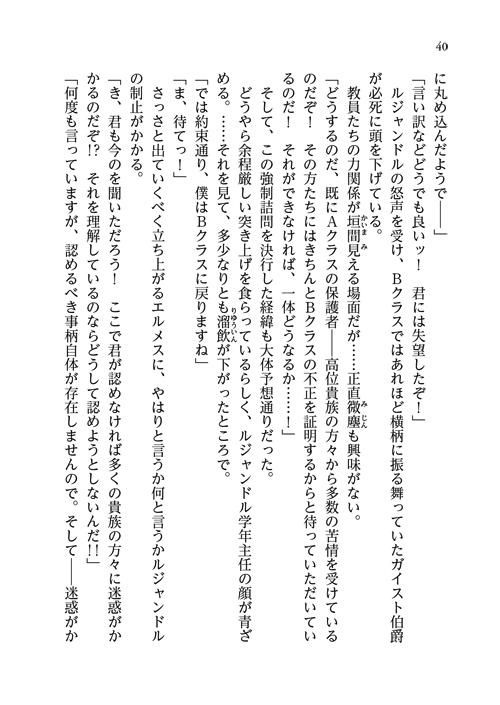 40
に丸め込んだようで――」
「言い訳などどうでも良いッ！　君には失望したぞ！」
　ルジャンドルの怒声を受け、Ｂクラスではあれほど横柄に振る舞っていたガイスト伯爵
が必死に頭を下げている。
　教員たちの力関係が垣間見える場面だが……正直微塵も興味がない。
「どうするのだ、既にＡクラスの保護者――高位貴族の方々から多数の苦情を受けている
のだぞ！　その方たちにはきちんとＢクラスの不正を証明するからと待っていただいてい
るのだ！　それができなければ、一体どうなるか……！」
　そして、この強制詰問を決行した経緯も大体予想通りだった。
　どうやら余程厳しい突き上げを食らっているらしく、ルジャンドル学年主任の顔が青ざ
める。……それを見て、多少なりとも溜飲が下がったところで。
「では約束通り、僕はＢクラスに戻りますね」
「ま、待てっ！」
　さっさと出ていくべく立ち上がるエルメスに、やはりと言うか何と言うかルジャンドル
の制止がかかる。
「き、君も今のを聞いただろう！　ここで君が認めなければ多くの貴族の方々に迷惑がか
かるのだぞ!?　それを理解しているのならどうして認めようとしないんだ!!」
「何度も言っていますが、認めるべき事柄自体が存在しませんので。そして――迷惑がか